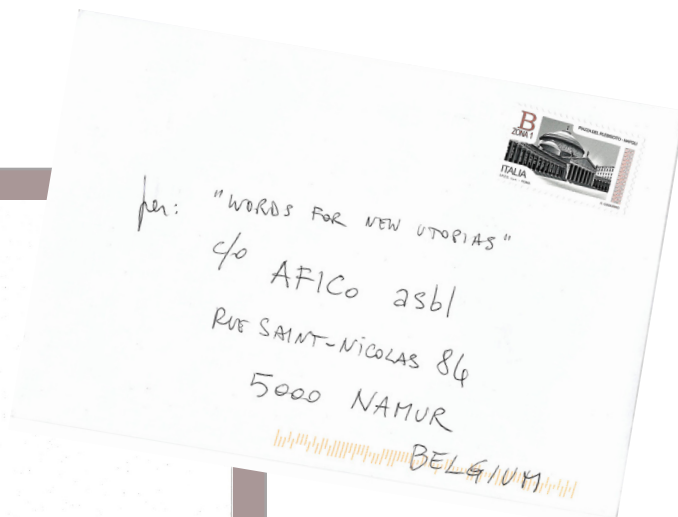 B
ZONA 1
PIAZZA DEL PLEBISCITO - NAPOLI
ITALIA
per: "WORDS FOR NEW UTOPIAS"
c/o AFICo asbl
RUE SAINT-NiCOLAS 84
5000 NAMUR
BELGIUM